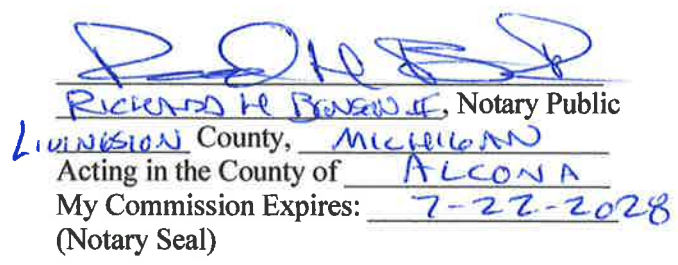 Richard H Bronson II, Notary Public
Livingston County, Michigan
Acting in the County of Alcona
My Commission Expires: 7-22-2028
(Notary Seal)